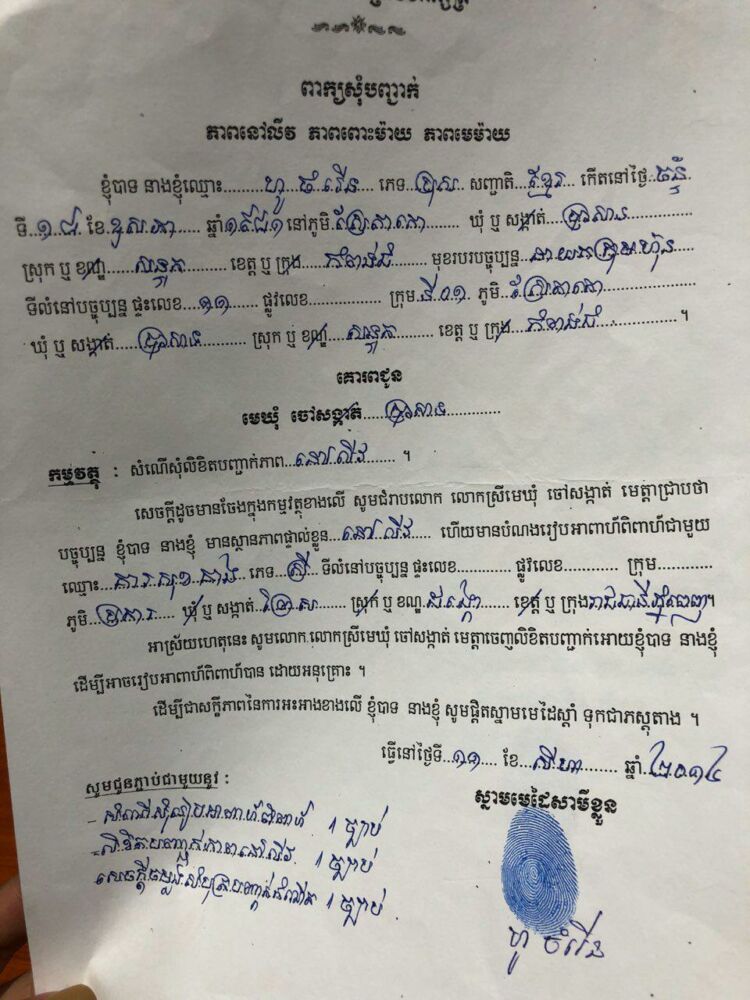 ពាក្យសុំបញ្ជាក់
ភាពនៅលីវ ភាពពោះម៉ាយ ភាពមេម៉ាយ
ខ្ញុំបាទ នាងខ្ញុំឈ្មោះ.........ហួ ចំរើន.... ភេទ..ប្រុស.. សញ្ជាតិ...ខ្មែរ... កើតនៅថ្ងៃ..ចន្ទ័.
ទី..១.៨.. ខែ.ឧសភា..... ឆ្នាំ១៩៨១ នៅភូមិ.ស្រែតាកោ....... ឃុំ ឬ សង្កាត់....
ស្រុក ឬ ខណ្ឌ......សន្ទុក....... ខេត្ត ឬ ក្រុង......កំពង់ធំ........ មុខរបរបច្ចុប្បន្ន..នាយកក្រុមហ៊ុន
ទីលំនៅបច្ចុប្បន្ន ផ្ទះលេខ...១១..... ផ្លូវលេខ................. ក្រុម.ទី.០១. ភូមិ..ស្រែតាកោ..........
ឃុំ ឬ សង្កាត់............ ស្រុក ឬ ខណ្ឌ....សន្ទុក........ ខេត្ត ឬ ក្រុង...កំពង់ធំ............. ។
គោរពជូន
មេឃុំ ចៅសង្កាត់................
កម្មវត្ថុ : សំណើសុំលិខិតបញ្ជាក់ភាព...នៅលីវ....... ។
សេចក្ដីដូចមានចែងក្នុងកម្មវត្ថុខាងលើ សូមជំរាបលោក លោកស្រីមេឃុំ ចៅសង្កាត់ មេត្តាជ្រាបថា
បច្ចុប្បន្ន ខ្ញុំបាទ នាងខ្ញុំ មានស្ថានភាពផ្ទាល់ខ្លួន....នៅលីវ...... ហើយមានបំណងរៀបអាពាហ៍ពិពាហ៍ជាមួយ
ឈ្មោះ............ ភេទ...ស្រី... ទីលំនៅបច្ចុប្បន្ន ផ្ទះលេខ............ ផ្លូវលេខ............. ក្រុម............
ភូមិ............ ឃុំ ឬ សង្កាត់............ ស្រុក ឬ ខណ្ឌ.ដង្កោ....... ខេត្ត ឬ ក្រុងរាជធានីភ្នំពេញ។
អាស្រ័យហេតុនេះ សូមលោក លោកស្រីមេឃុំ ចៅសង្កាត់ មេត្តាចេញលិខិតបញ្ជាក់អោយខ្ញុំបាទ នាងខ្ញុំ
ដើម្បីអាចរៀបអាពាហ៍ពិពាហ៍បាន ដោយអនុគ្រោះ ។
ដើម្បីជាសក្ខីភាពនៃការអះអាងខាងលើ ខ្ញុំបាទ នាងខ្ញុំ សូមផ្ដិតស្នាមមេដៃស្ដាំ ទុកជាភស្តុតាង ។
ធ្វើនៅថ្ងៃទី...១១.... ខែ....សីហា........ ឆ្នាំ..២០១៤
សូមជូនភ្ជាប់ជាមួយនូវ :
ស្នាមមេដៃសាមីខ្លួន
- សំណើសុំរៀបអាពាហ៍ពិពាហ៍ 1 ច្បាប់
- លិខិតបញ្ជាក់ភាពនៅលីវ 1 ច្បាប់
សេចក្ដីចម្លងសំបុត្របញ្ជាក់កំណើត 1 ច្បាប់
ហួ ចំរើន